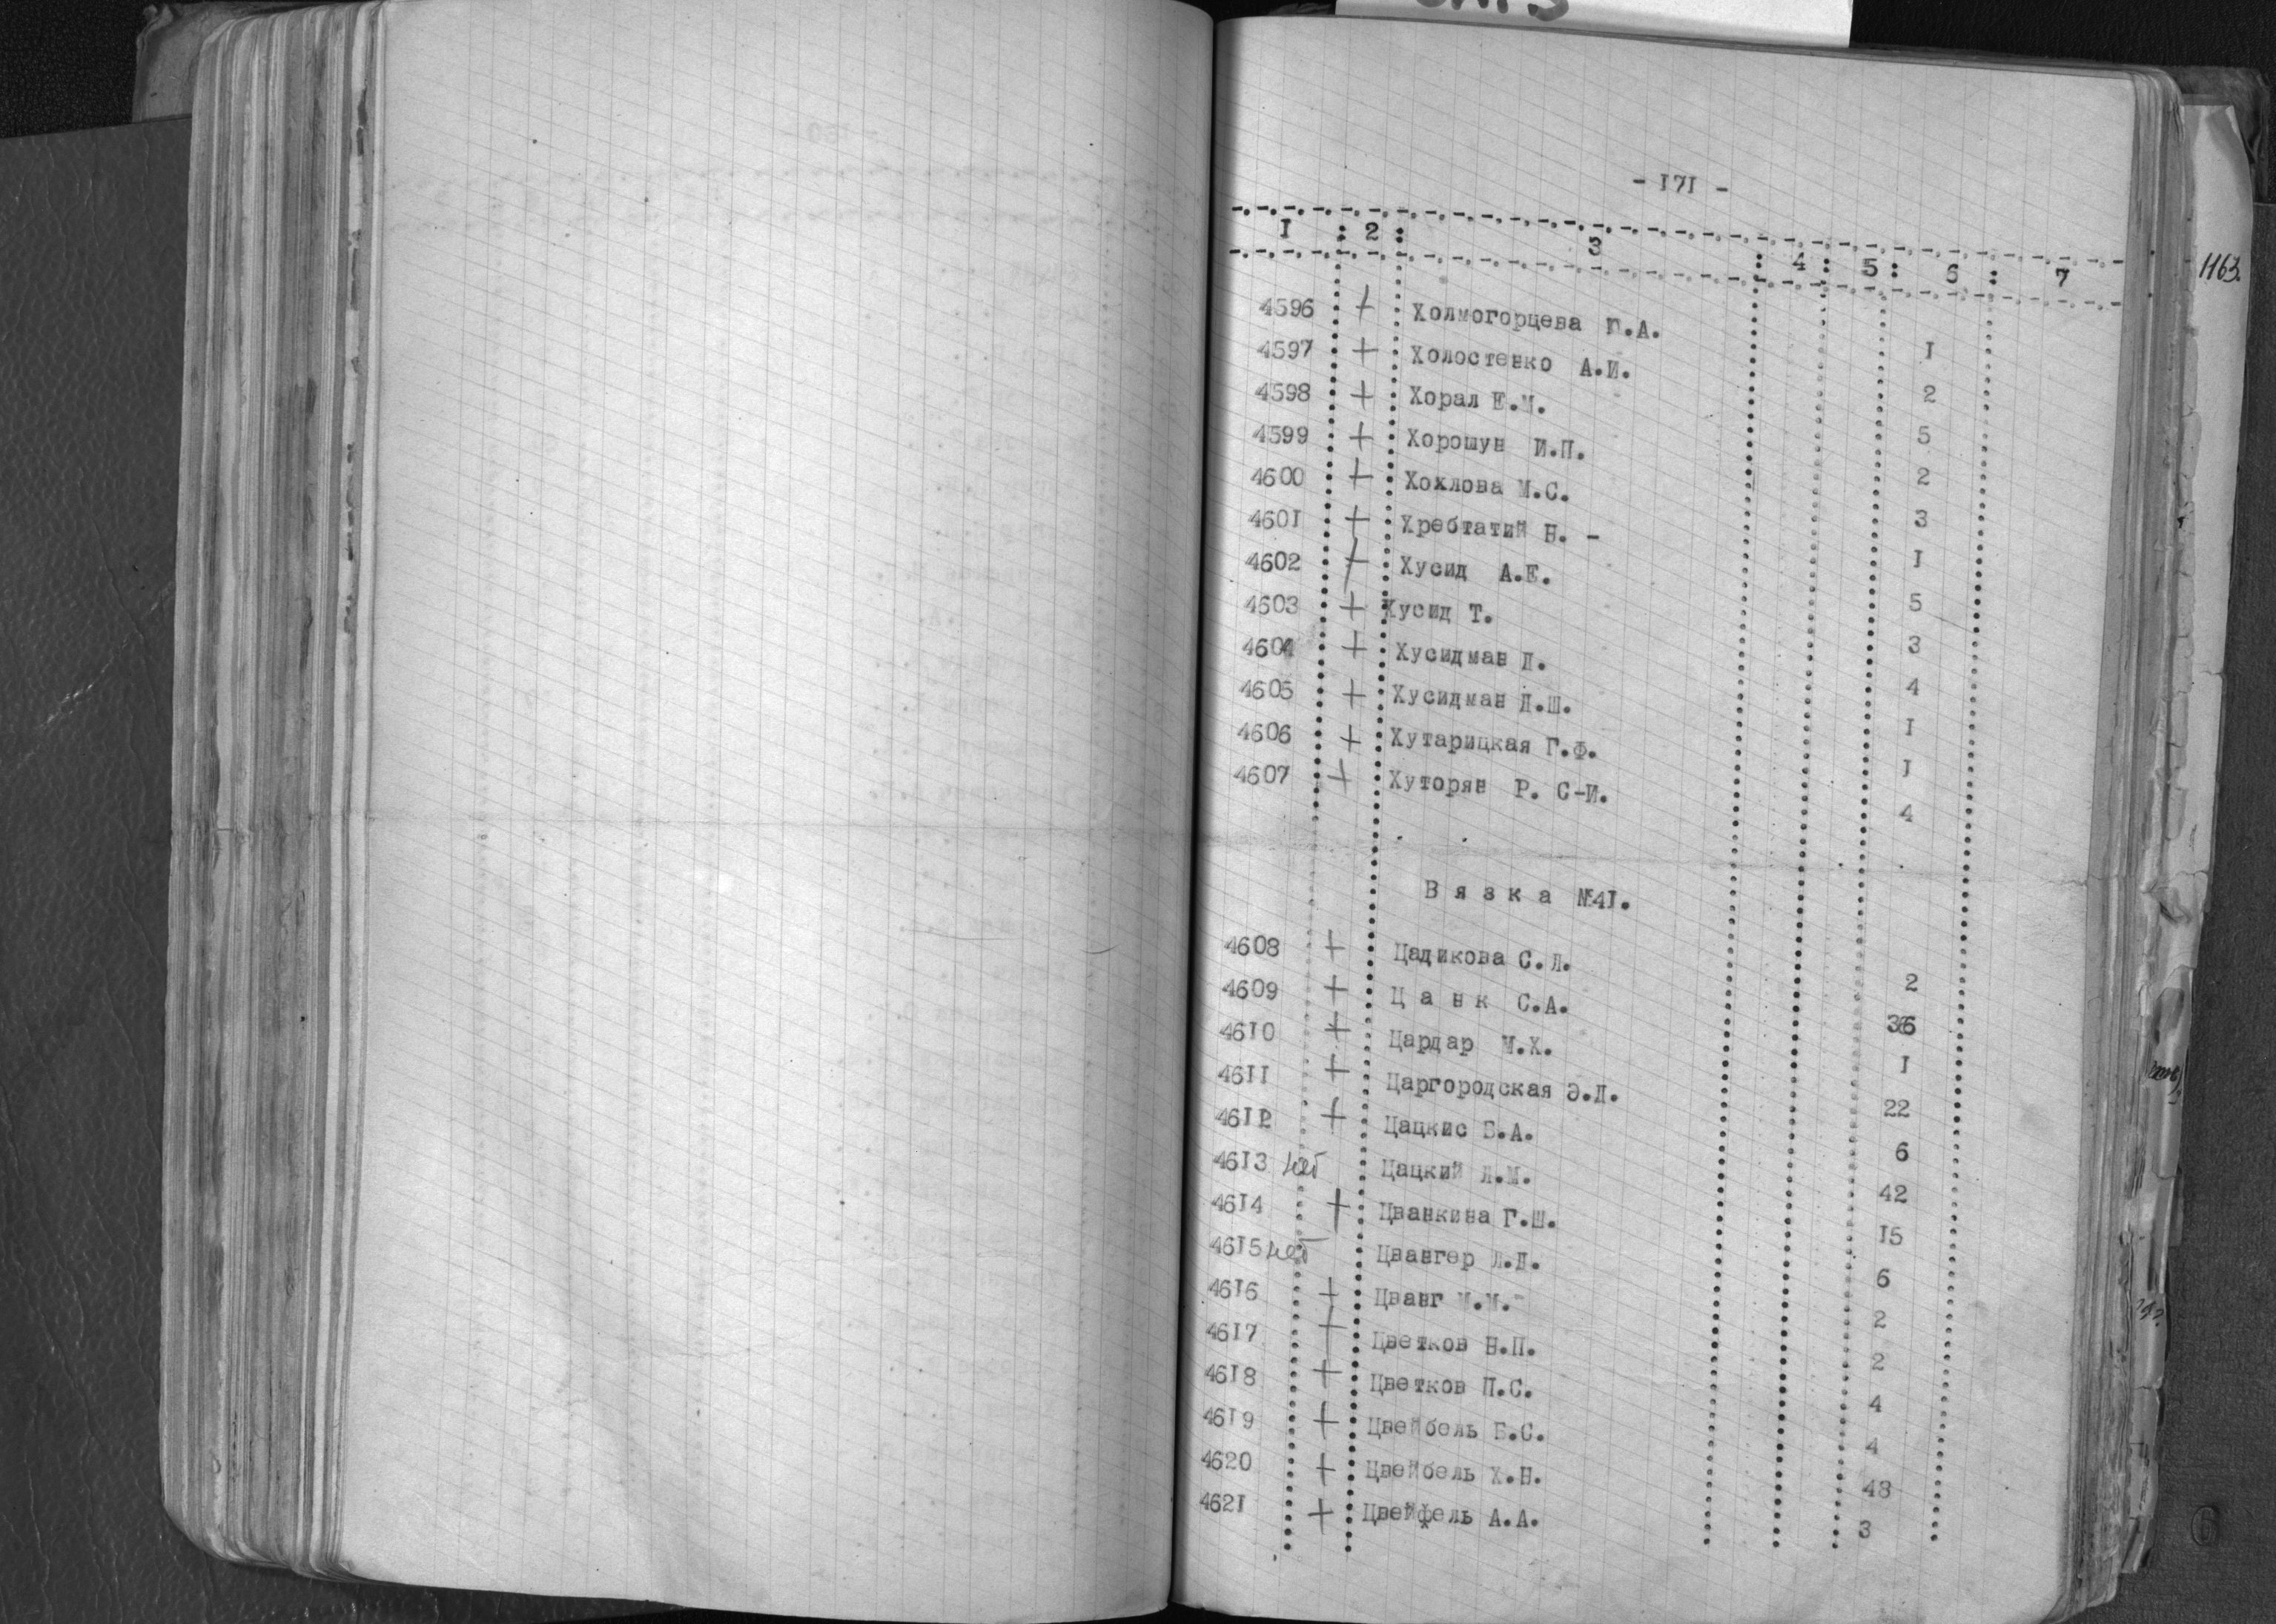 - I7I -
I : 2 : 3 : 4 : 5 : 6 : 7
1163.
4596 + Холмогорцева П.А. I
4597 + Холостенко А.И. 2
4598 + Хорал Е.М. 5
4599 + Хорошун И.П. 2
4600 + Хохлова М.С. 3
460I + Хребтатий Н. - I
4602 + Хусид А.Е. 5
4603 + Хусид Т. 3
4604 + Хусидман Л. 4
4605 + Хусидман Л.Ш. I
4606 + Хутарицкая Г.Ф. I
4607 + Хуторян Р. С-И. 4
В я з к а №4I.
4608 + Цадикова С.Л. 2
4609 + Ц а н к С.А. 36
46I0 + Цардар М.Х. I
46II + Царгородская Э.Л. 22
46I2 + Цацкис Б.А. 6
46I3 нет Цацкий Л.М. 42
46I4 + Цванкина Г.Ш. I5
46I5 нет Цвангер Л.Л. 6
46I6 + Цванг М.М. 2
46I7 + Цветков Н.П. 2
46I8 + Цветков П.С. 4
46I9 + Цвейбель Б.С. 4
4620 + Цвейбель Х.Н. 48
462I + Цвейфель А.А. 3